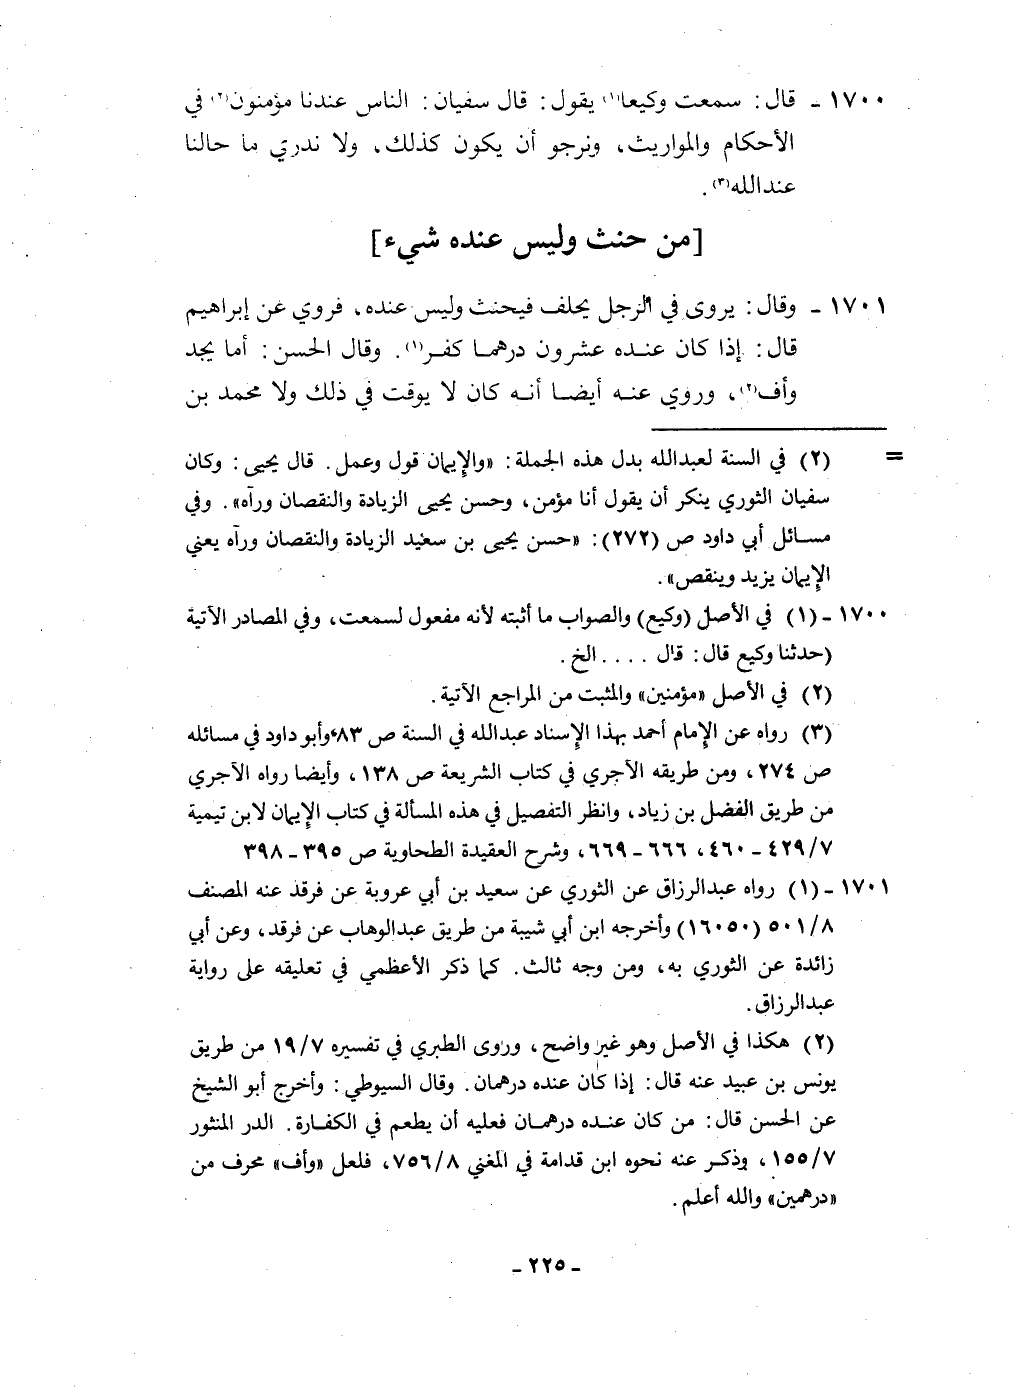 ١٧٠٠ ـ قال: سمعت وكيعا(١) يقول: قال سفيان: الناس عندنا مؤمنون(٢) في
الأحكام والمواريث، ونرجو أن يكون كذلك، ولا ندري ما حالنا
عندالله(٣).
[من حنث وليس عنده شيء]
١٧٠١ ـ وقال: يروى في الرجل يحلف فيحنث وليس عنده، فروي عن إبراهيم
قال: إذا كان عنده عشرون درهما كفر(١). وقال الحسن: أما يجد
وأف(٢)، وروي عنه أيضا أنه كان لا يوقت في ذلك ولا محمد بن
= (٢) في السنة لعبدالله بدل هذه الجملة: «والإيمان قول وعمل. قال يحيى: وكان
سفيان الثوري ينكر أن يقول أنا مؤمن، وحسن يحيى الزيادة والنقصان ورآه». وفي
مسائل أبي داود ص (٢٧٢): «حسن يحيى بن سعيد الزيادة والنقصان ورآه يعني
الإيمان يزيد وينقص».
١٧٠٠ ـ (١) في الأصل (وكيع) والصواب ما أثبته لأنه مفعول لسمعت، وفي المصادر الآتية
(حدثنا وكيع قال: قال .... الخ.
(٢) في الأصل «مؤمنين» والمثبت من المراجع الآتية.
(٣) رواه عن الإمام أحمد بهذا الإسناد عبدالله في السنة ص ٨٣ وأبو داود في مسائله
ص ٢٧٤، ومن طريقه الآجري في كتاب الشريعة ص ١٣٨، وأيضا رواه الآجري
من طريق الفضل بن زياد، وانظر التفصيل في هذه المسألة في كتاب الإيمان لابن تيمية
٤٢٩/٧ ـ ٤٦٠، ٦٦٦ ـ ٦٦٩، وشرح العقيدة الطحاوية ص ٣٩٥ ـ ٣٩٨
١٧٠١ ـ (١) رواه عبدالرزاق عن الثوري عن سعيد بن أبي عروبة عن فرقد عنه المصنف
٥٠١/٨ (١٦٠٥٠) وأخرجه ابن أبي شيبة من طريق عبدالوهاب عن فرقد، وعن أبي
زائدة عن الثوري به، ومن وجه ثالث. كما ذكر الأعظمي في تعليقه على رواية
عبدالرزاق.
(٢) هكذا في الأصل وهو غير واضح، وروى الطبري في تفسيره ١٩/٧ من طريق
يونس بن عبيد عنه قال: إذا كان عنده درهمان. وقال السيوطي: وأخرج أبو الشيخ
عن الحسن قال: من كان عنده درهمان فعليه أن يطعم في الكفارة. الدر المنثور
١٥٥/٧، وذكر عنه نحوه ابن قدامة في المغني ٧٥٦/٨، فلعل «وأف» محرف من
«درهمين» والله أعلم.
ـ ٢٢٥ ـ